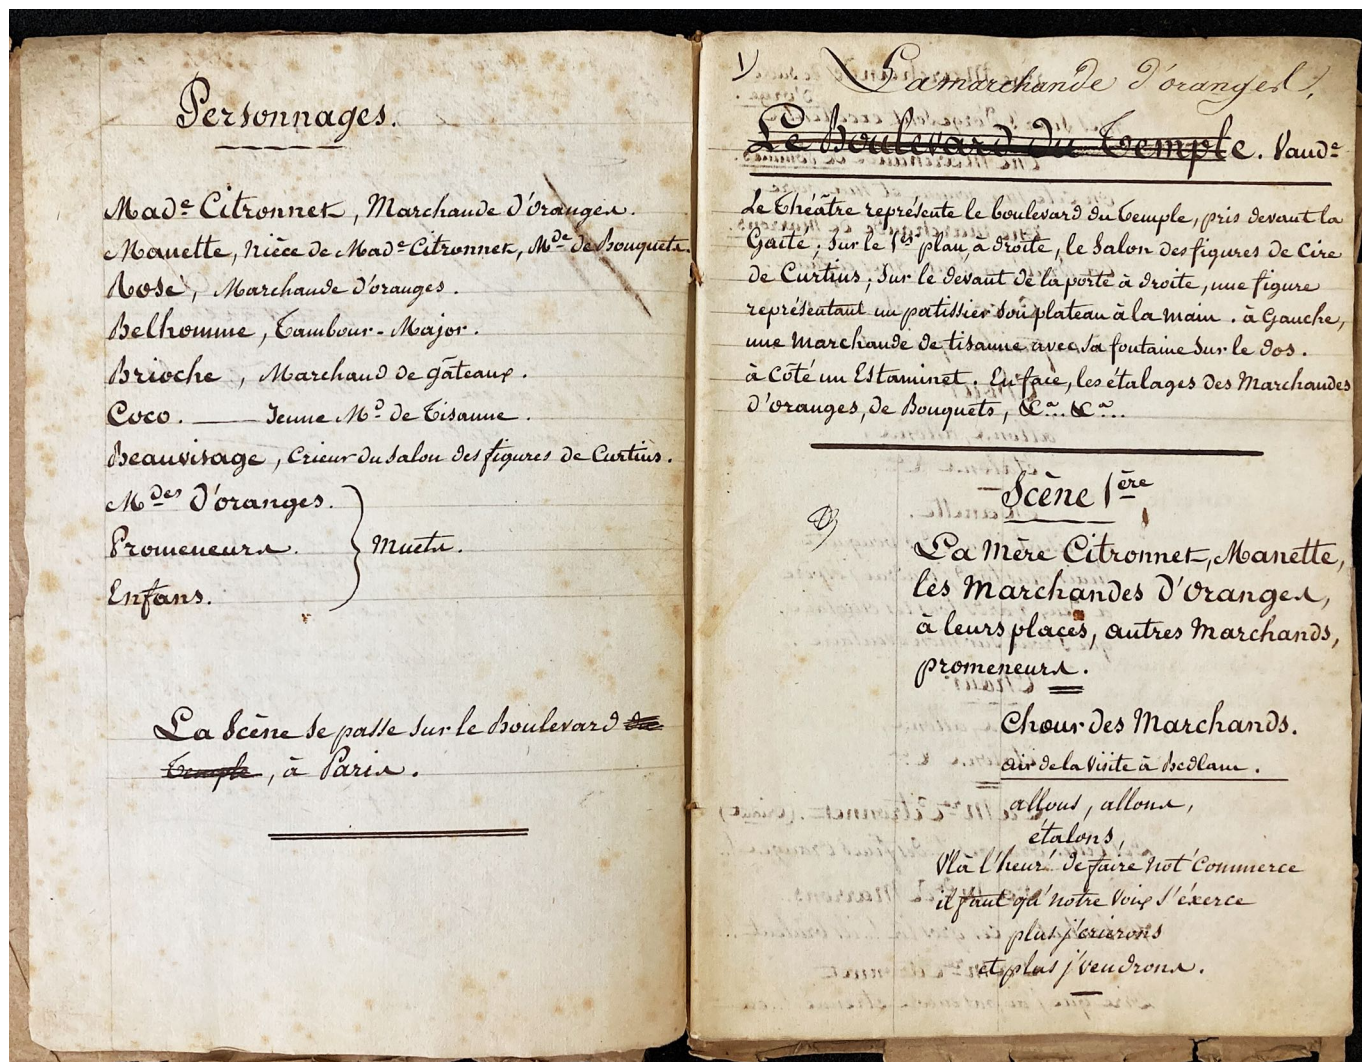 Personnages.
Made Citronnet, Marchande d'Oranges.
Manette, Nièce de Made Citronnet, Mde de Bouquets.
Rose, Marchande d'oranges.
Belhomme, Tambour-Major.
Brioche, Marchand de gâteaux.
Coco. — Jeune Md de Tisanne.
Beauvisage, Crieur du Salon des figures de Curtius.
Mdes d'oranges.
Promeneurs. } Muets.
Enfans.
La Scène se passe sur le Boulevard du
Temple, à Paris.
1)
La marchande d'oranges
Le Boulevard du Temple. Vaude
Le Théâtre représente le boulevard du Temple, pris devant la
Gaité; Sur le 1er plan à droite, le Salon des figures de Cire
de Curtius; Sur le devant de la porte à droite, une figure
représentant un patissier son plateau à la main. à Gauche,
une Marchande de tisanne avec sa fontaine sur le dos.
à Côté un Estaminet. En face, les étalages des Marchandes
d'Oranges, de Bouquets, &a.. &a..
Scène 1ère
La Mère Citronnet, Manette,
les Marchandes d'Oranges,
à leurs places, autres Marchands,
promeneurs.
Chœur des Marchands.
air de la Visite à Bedlam.
allons, allons,
étalons,
V'là l'heur' de faire not' Commerce
il faut qu' notre Voix s'éxerce
plus j'crierons
et plus j'vendrons.